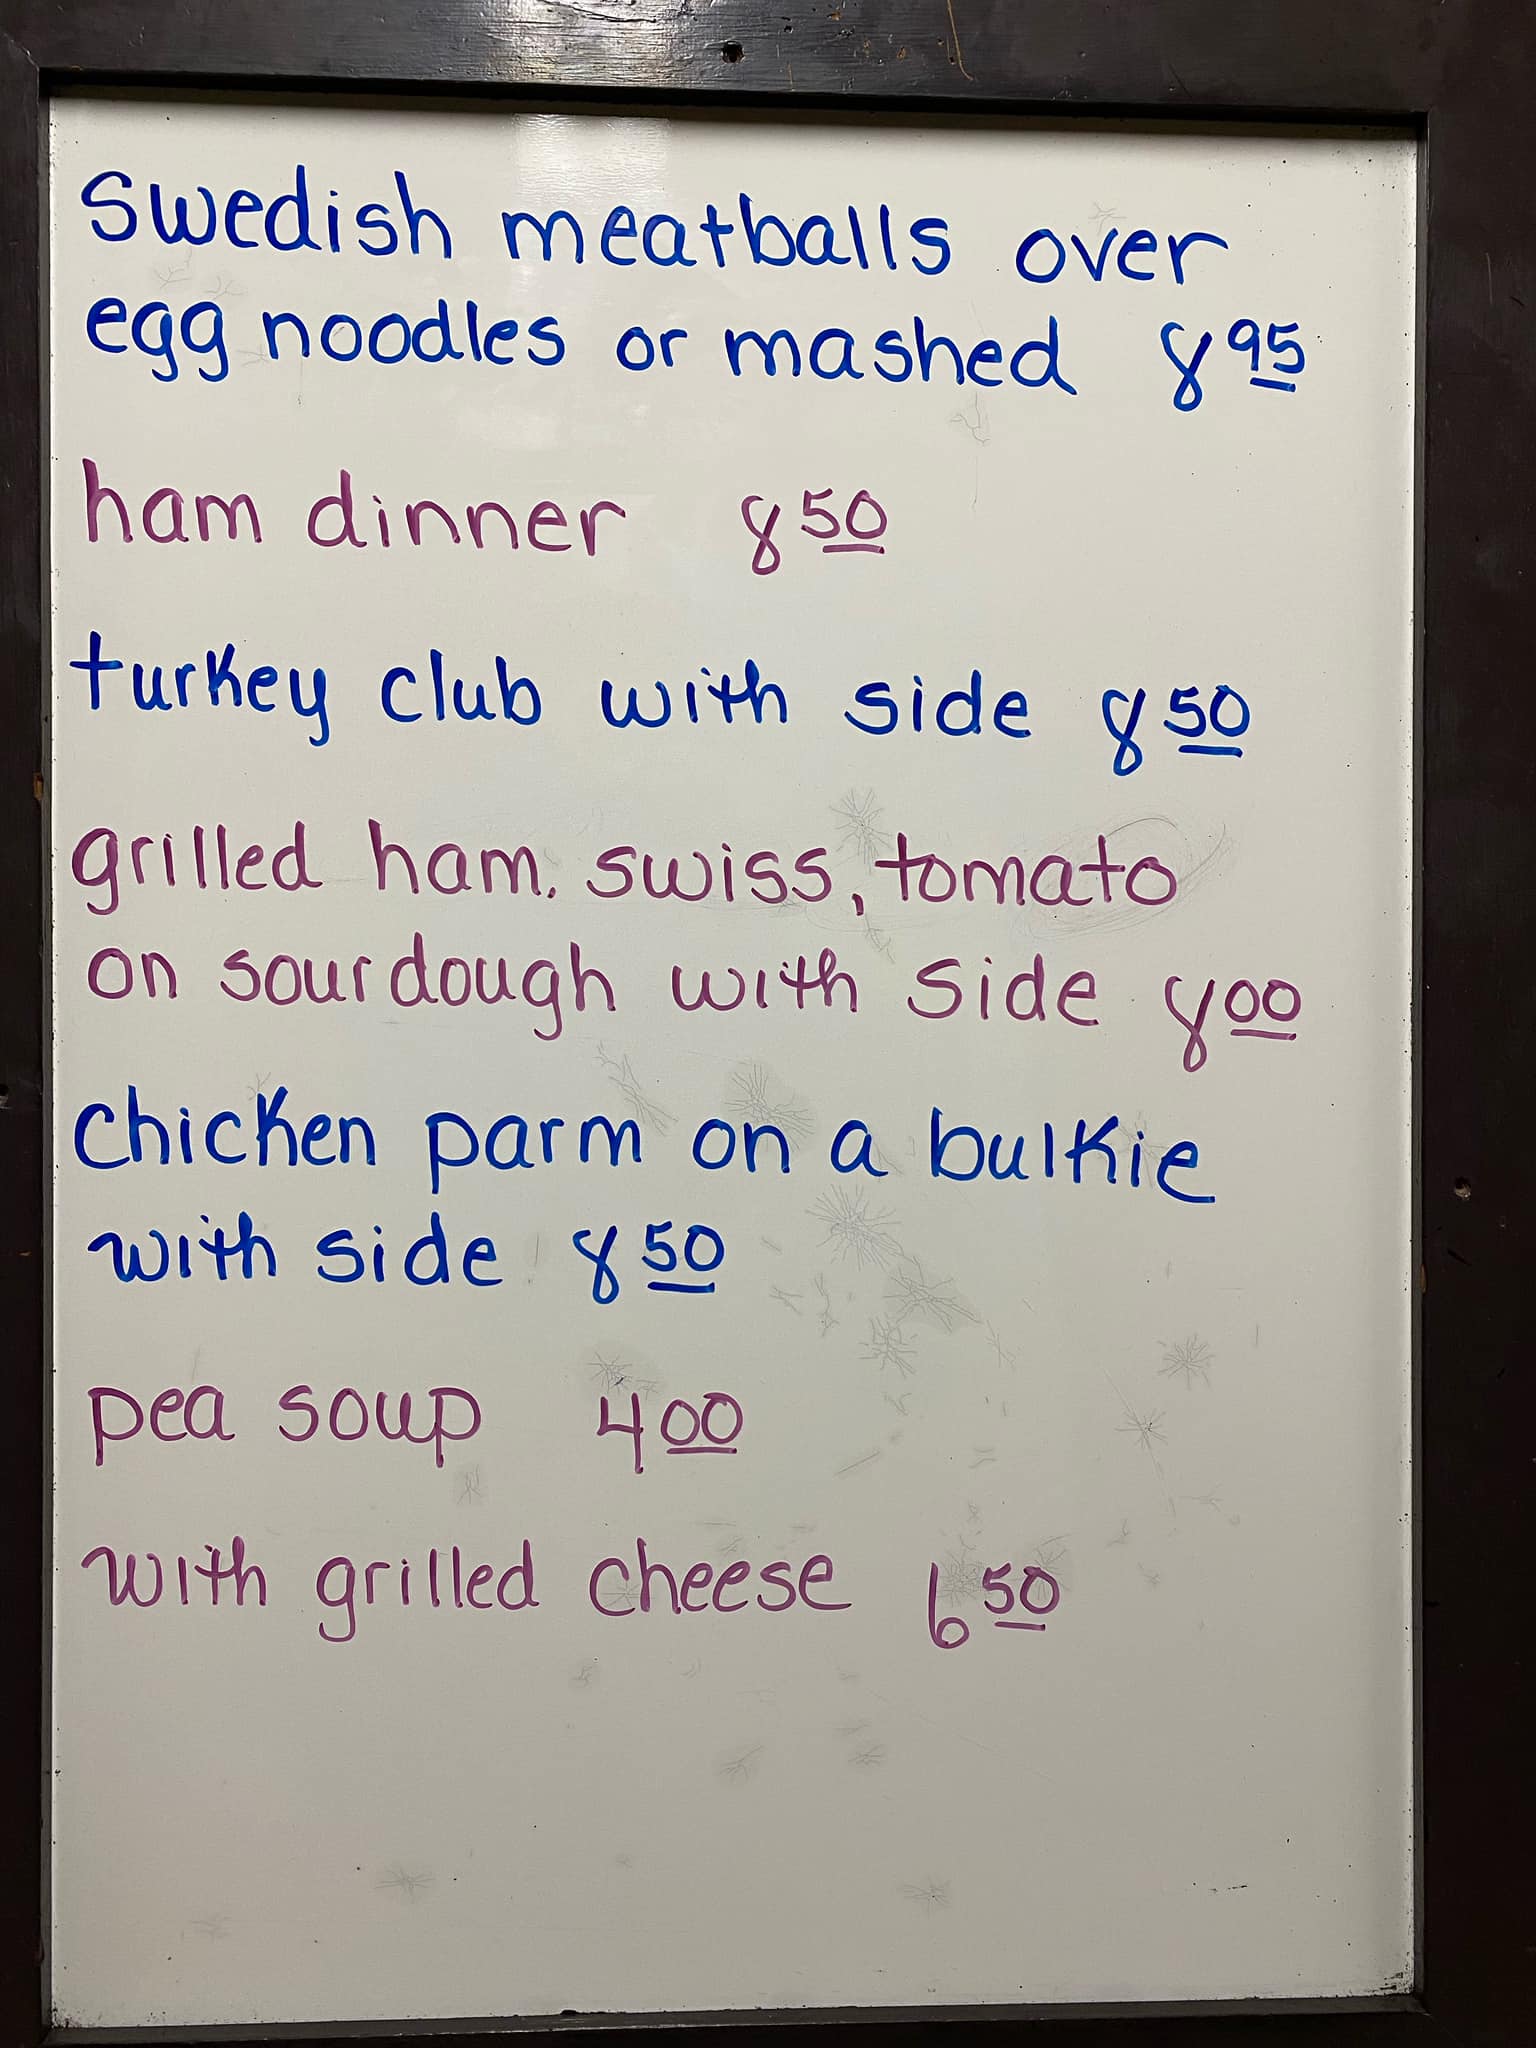 Swedish meatballs over
egg noodles or mashed 8 95
ham dinner 8 50
turkey club with side 8 50
grilled ham. swiss, tomato
on sourdough with side 8 00
chicken parm on a bulkie
with side 8 50
pea soup 4 00
with grilled cheese 6 50